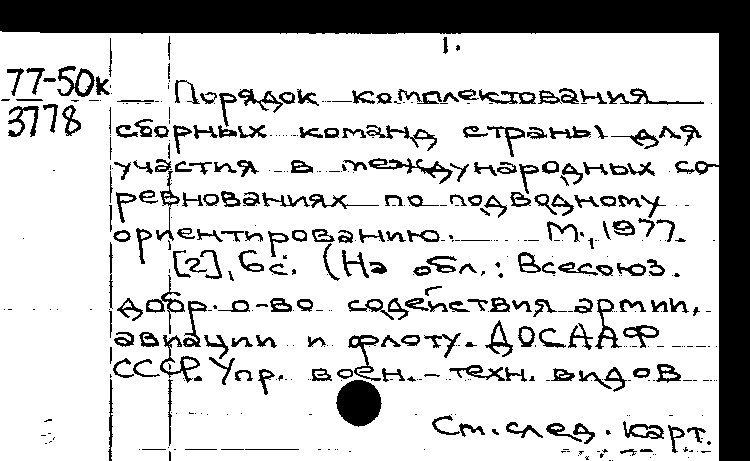 1.
77-50к
3778
Порядок комплектования
сборных команд страны для
участия в международных со-
ревнованиях по подводному
ориентированию. М., 1977.
[2], 6с. (На обл.: Всесоюз.
добр. о-во содействия армии,
авиации и флоту. ДОСААФ
СССР. Упр. воен.-техн. видов
См. след. карт.